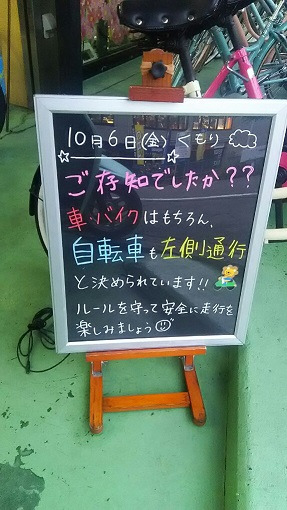 10月6日(金) くもり
ご存知でしたか??
車・バイクはもちろん、
自転車も左側通行
と決められています!!
ルールを守って安全に走行を
楽しみましょう